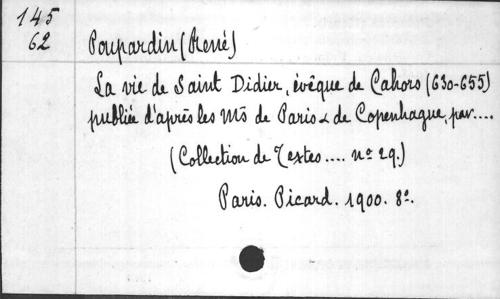 145
62
Poupardin (René)
La vie de Saint Didier, évêque de Cahors (630-655)
publiée d'après les Mss de Paris & de Copenhague, par....
(Collection de Textes.... nº 29.)
Paris. Picard. 1900. 8º.